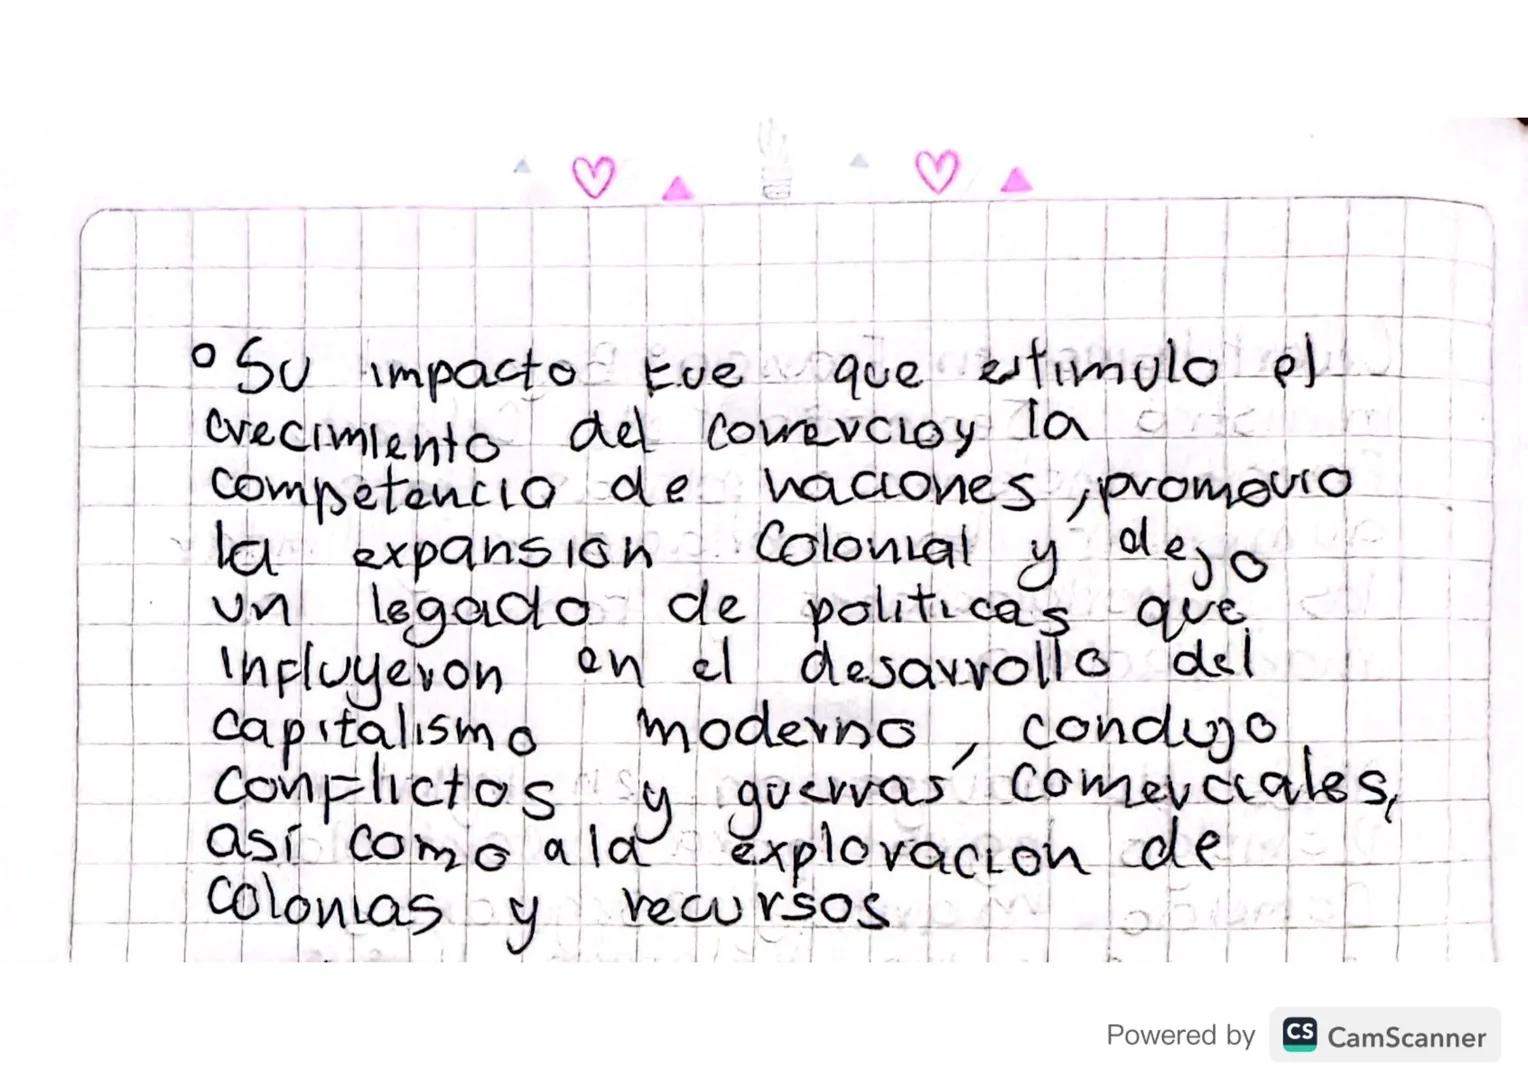 ° Su impacto fue que estimulo el
crecimiento del comercio y la
competencia de naciones, promovio
la expansion colonial y dejo
un legado de politicas que
influyeron en el desarrollo del
capitalismo moderno, condujo
conflictos y guerras comerciales,
así como a la exploracion de
colonias y recursos
Powered by CS CamScanner